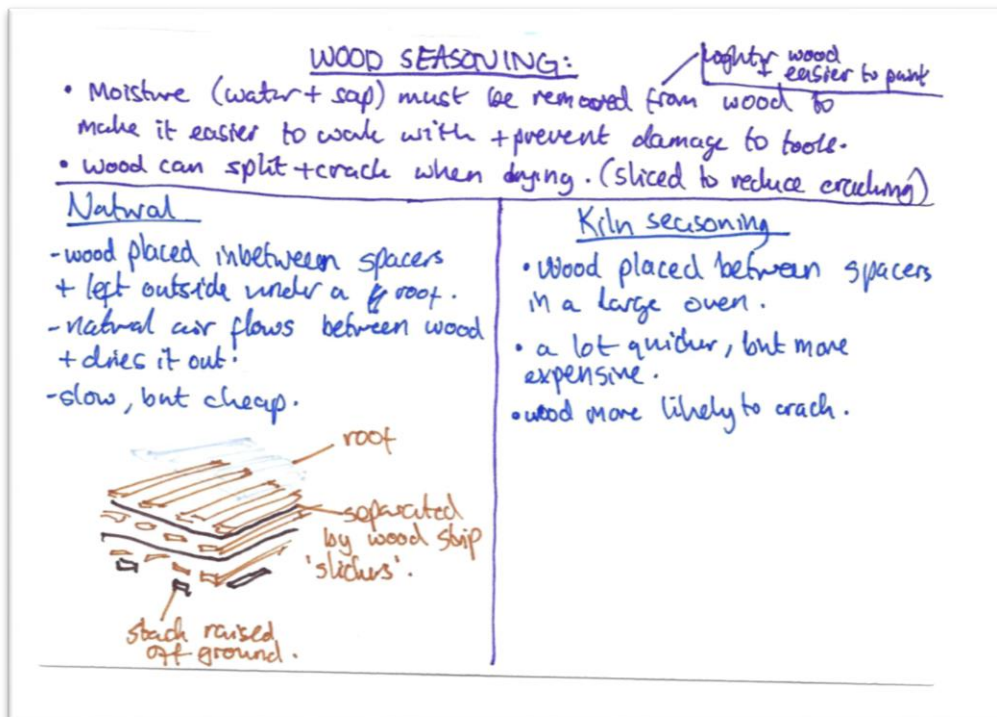 WOOD SEASONING:
lighter wood
+ easier to paint
• Moisture (water + sap) must be removed from wood to
make it easier to work with + prevent damage to tools.
• wood can split + crack when drying. (sliced to reduce cracking)
Natural
- wood placed inbetween spacers
+ left outside under a roof.
- natural air flows between wood
+ dries it out.
- slow, but cheap.
roof
separated
by wood strip
'stickers'.
stack raised
off ground.
Kiln seasoning
• Wood placed between spacers
in a large oven.
• a lot quicker, but more
expensive.
• wood more likely to crack.